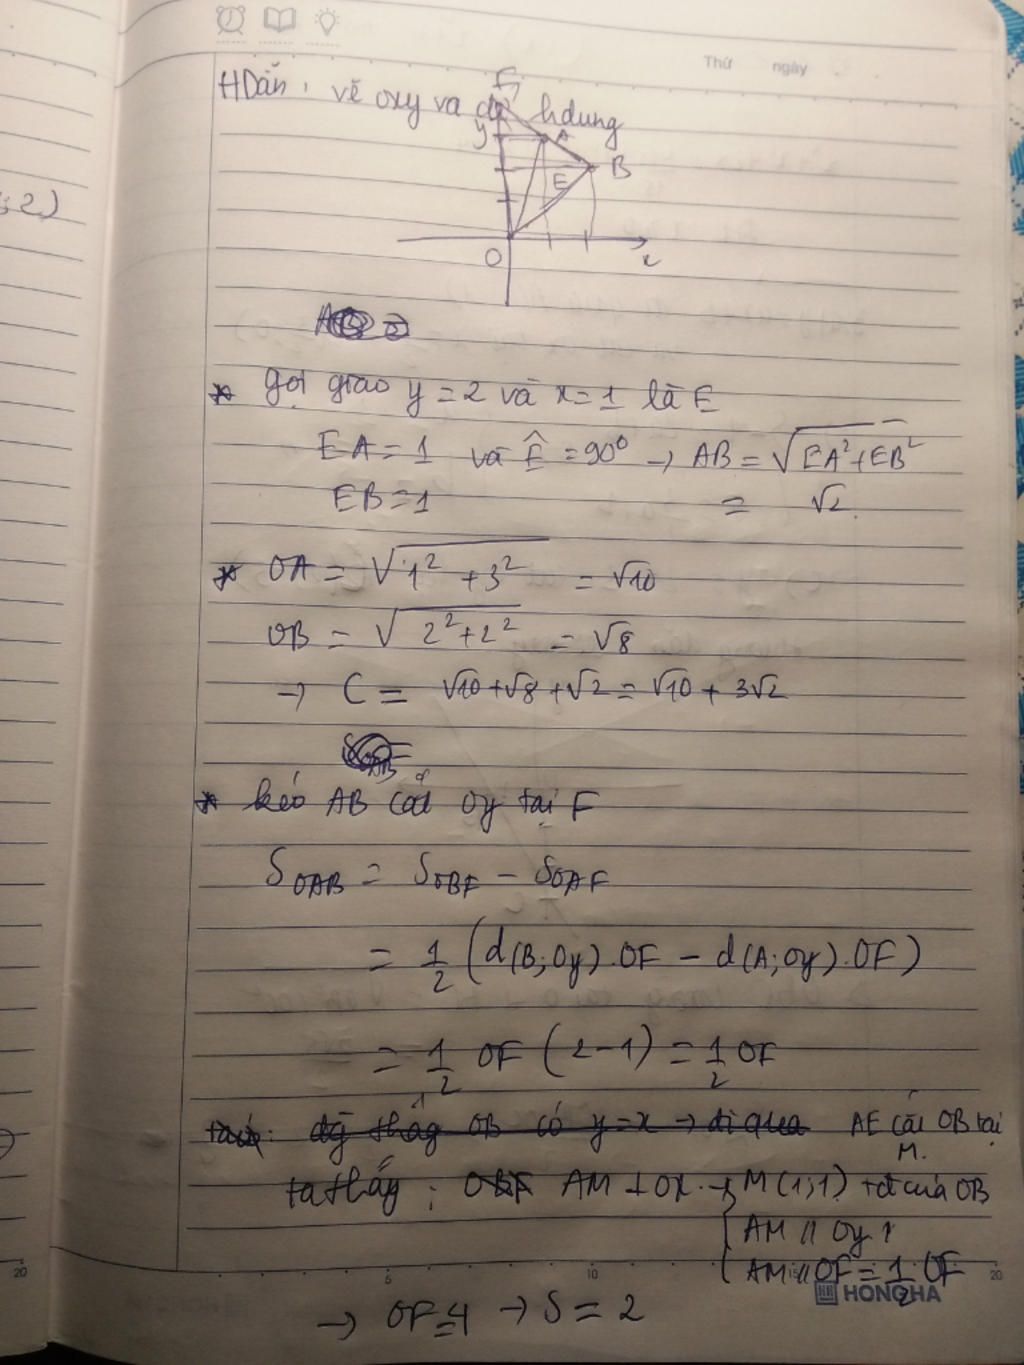 Thứ ngày
HDẫn: vẽ oxy và để hdung
F
y A
B
E
O x
; 2)
* gọi giao y = 2 và x = 1 là E
EA = 1 và Ê = 90° → AB = √EA² + EB²
EB = 1 = √2.
* OA = √1² + 3² = √10
OB = √2² + 2² = √8
→ C = √10 + √8 + √2 = √10 + 3√2
* kéo AB cắt Oy tại F
S OAB = S OBF - S OAF
= 1/2 (d(B; Oy) . OF - d(A; Oy) . OF)
= 1/2 OF (2 - 1) = 1/2 OF
thẳng OB có y = x → đi qua AE cắt OB tại
M.
ta thấy: AM ⊥ Ox → M(1; 1) tđ của OB
AM // Oy
AM // OF = 1/2 OF
20 5 10 15 20
HONGHA
→ OF = 4 → S = 2